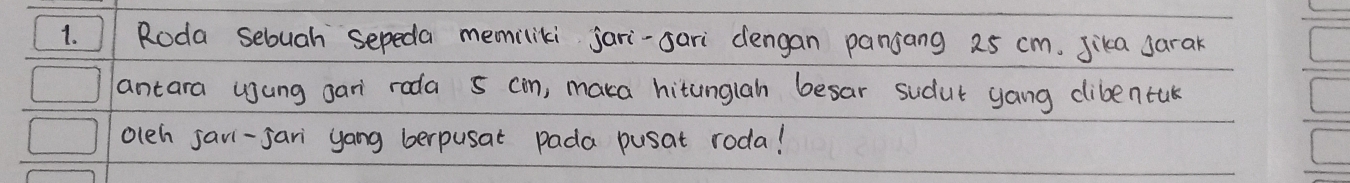 1. Roda sebuah sepeda memiliki jari-jari dengan panjang 25 cm. Jika jarak
antara ujung jari roda 5 cm, maka hitunglah besar sudut yang dibentuk
oleh jari-jari yang berpusat pada pusat roda!